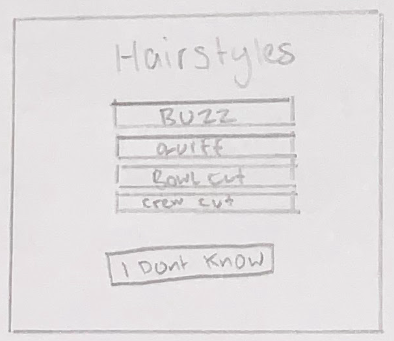 Hairstyles
BUZZ
Quiff
Bowl cut
crew cut
I Dont Know